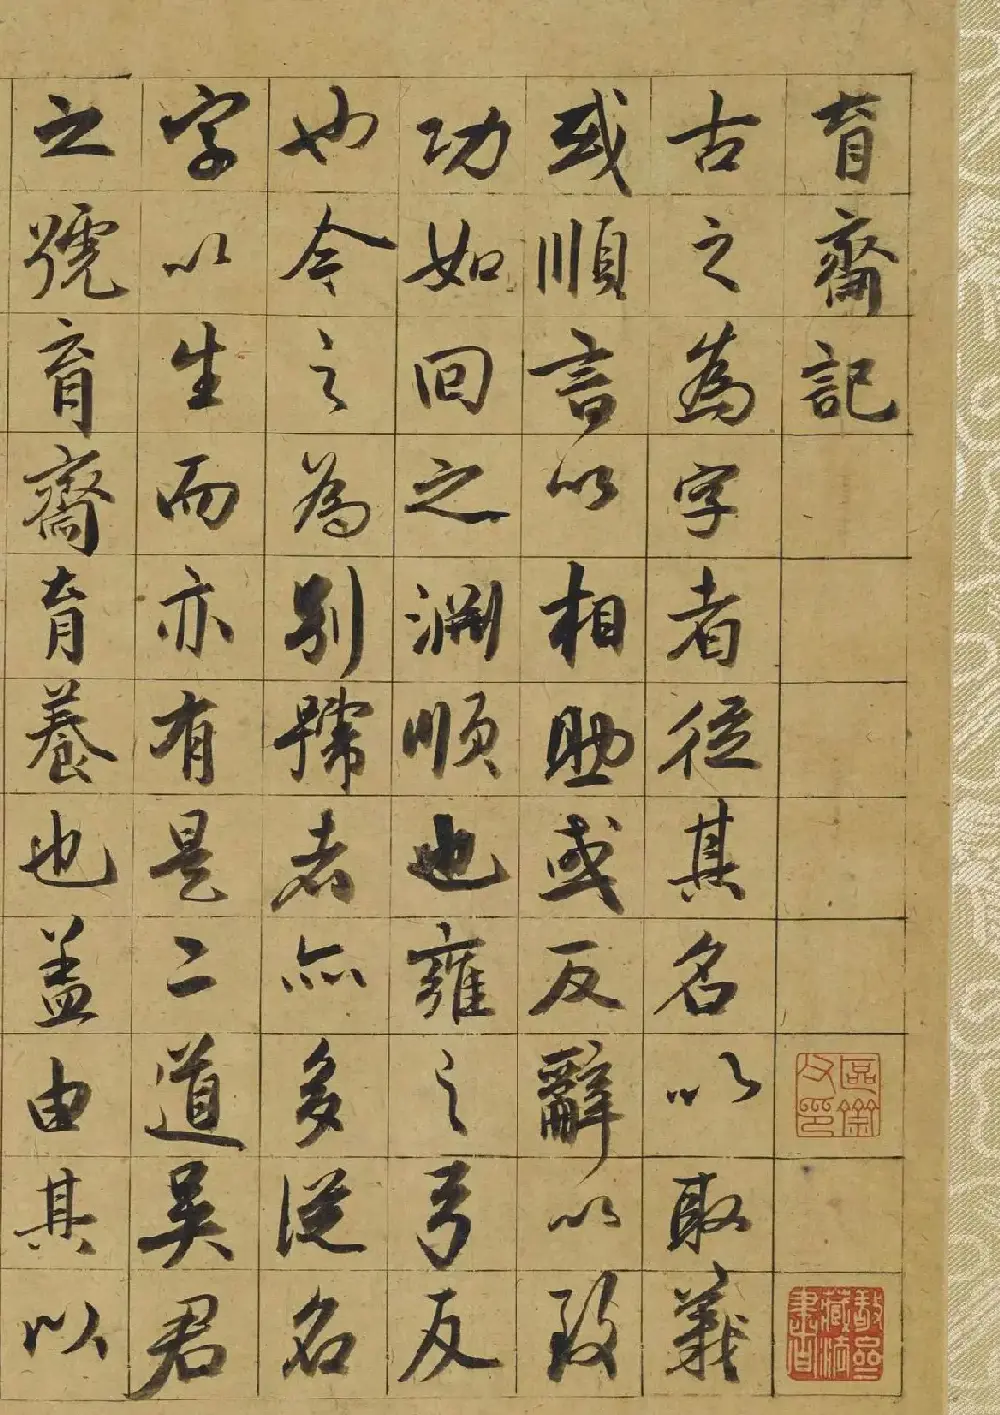 育齋記
古之為字者從其名以取義
或順言以相助或反辭以致
功如回之淵順也雍之弓反
也今之為別號者亦多從名
字以生而亦有是二道吳君
之號育齋育養也蓋由其以